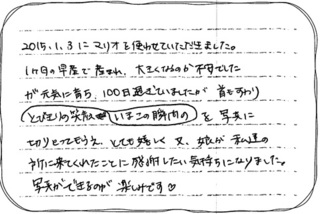 2015.1.3にマリオを使わせていただきました。
1ヶ月の早産で産まれ、大きくなるのか不安でした
が元気に育ち、100日過ぎていましたが 首もすわり
とびきりの笑顔 いまこの瞬間の を写真に
切りとってもらえ、とても嬉しく 又、娘が私達の
所に来てくれたことに感謝したい気持ちになりました。
写真ができるのが 楽しみです♡